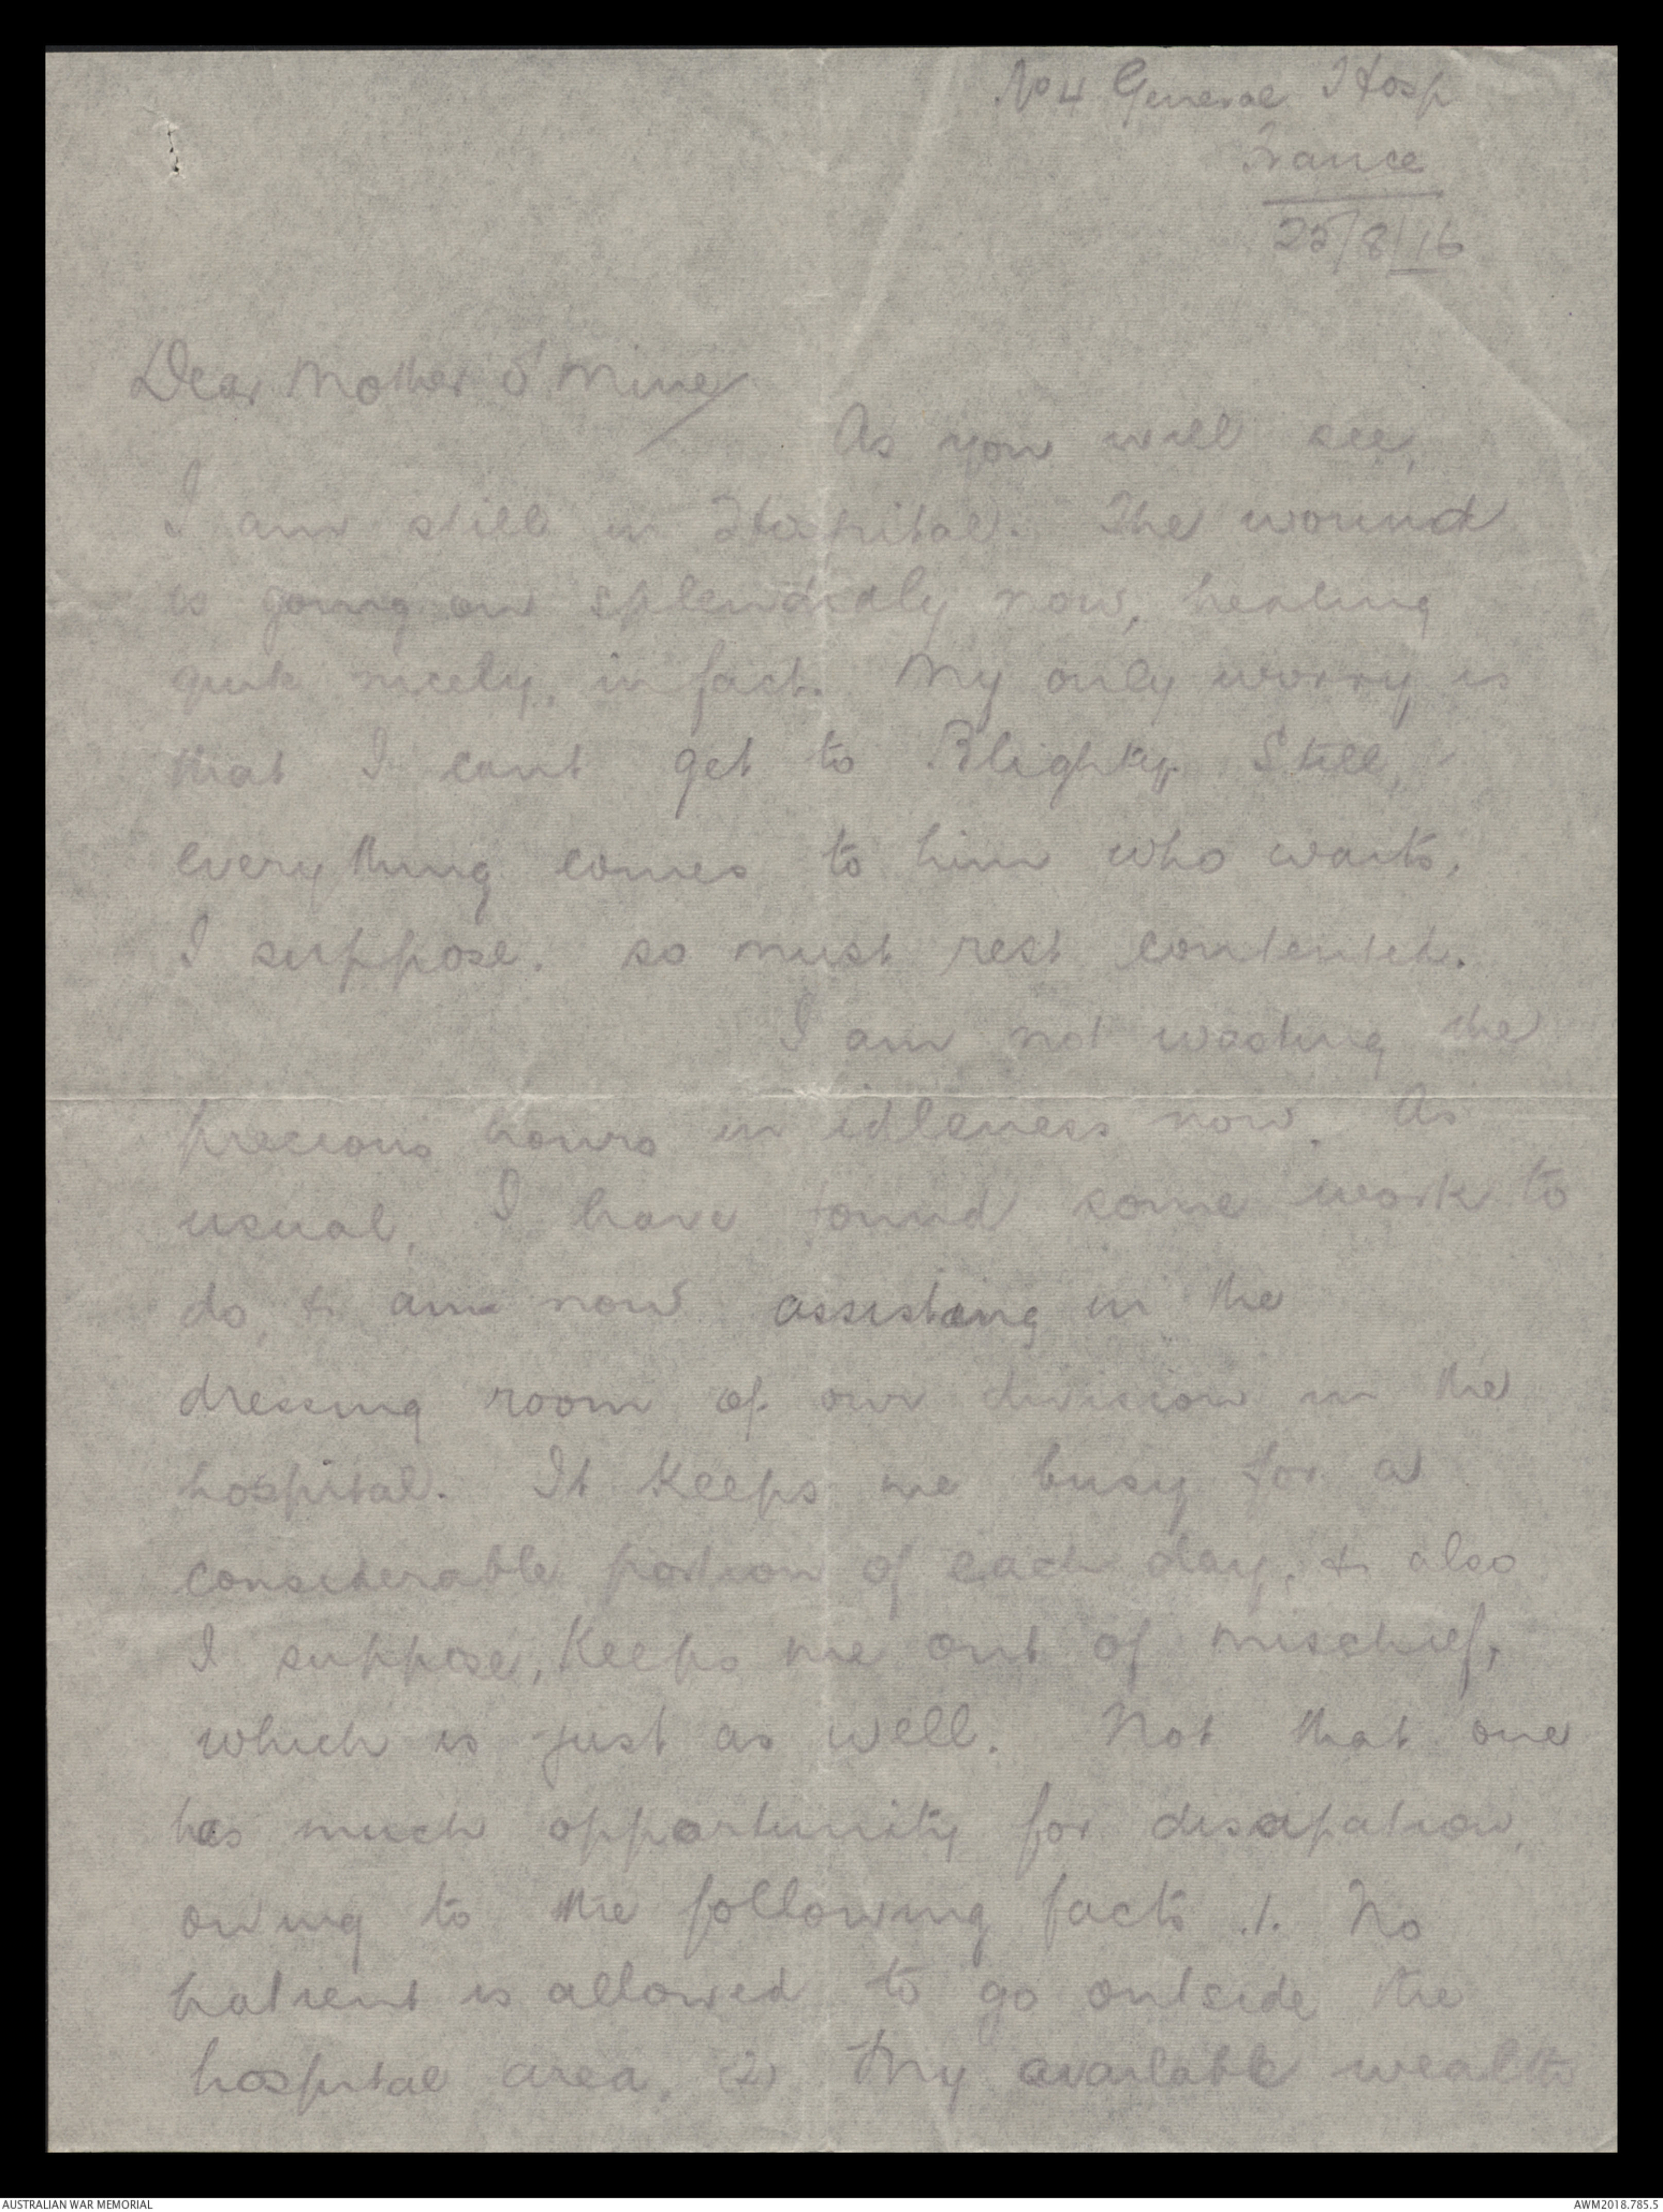 No 4 General Hosp
France
25/8/16
Dear Mother O' Mine/
As you will see,
I am still in Hospital. The wound
is going on splendidly now, healing
quite nicely, in fact. My only worry is
that I cant get to Blighty. Still,
everything comes to him who waits,
I suppose. so must rest contented.
I am not wasting the
precious hours in idleness now. As
usual, I have found some work to
do, & am now assisting in the
dressing room of our division in the
hospital. It keeps me busy for a
considerable portion of each day, & also
I suppose, keeps me out of mischief,
which is just as well. Not that one
has much opportunity for disapation,
owing to the following facts .1. No
patient is allowed to go outside the
hospital area. (2) My available wealth
AUSTRALIAN WAR MEMORIAL
AWM2018.785.5